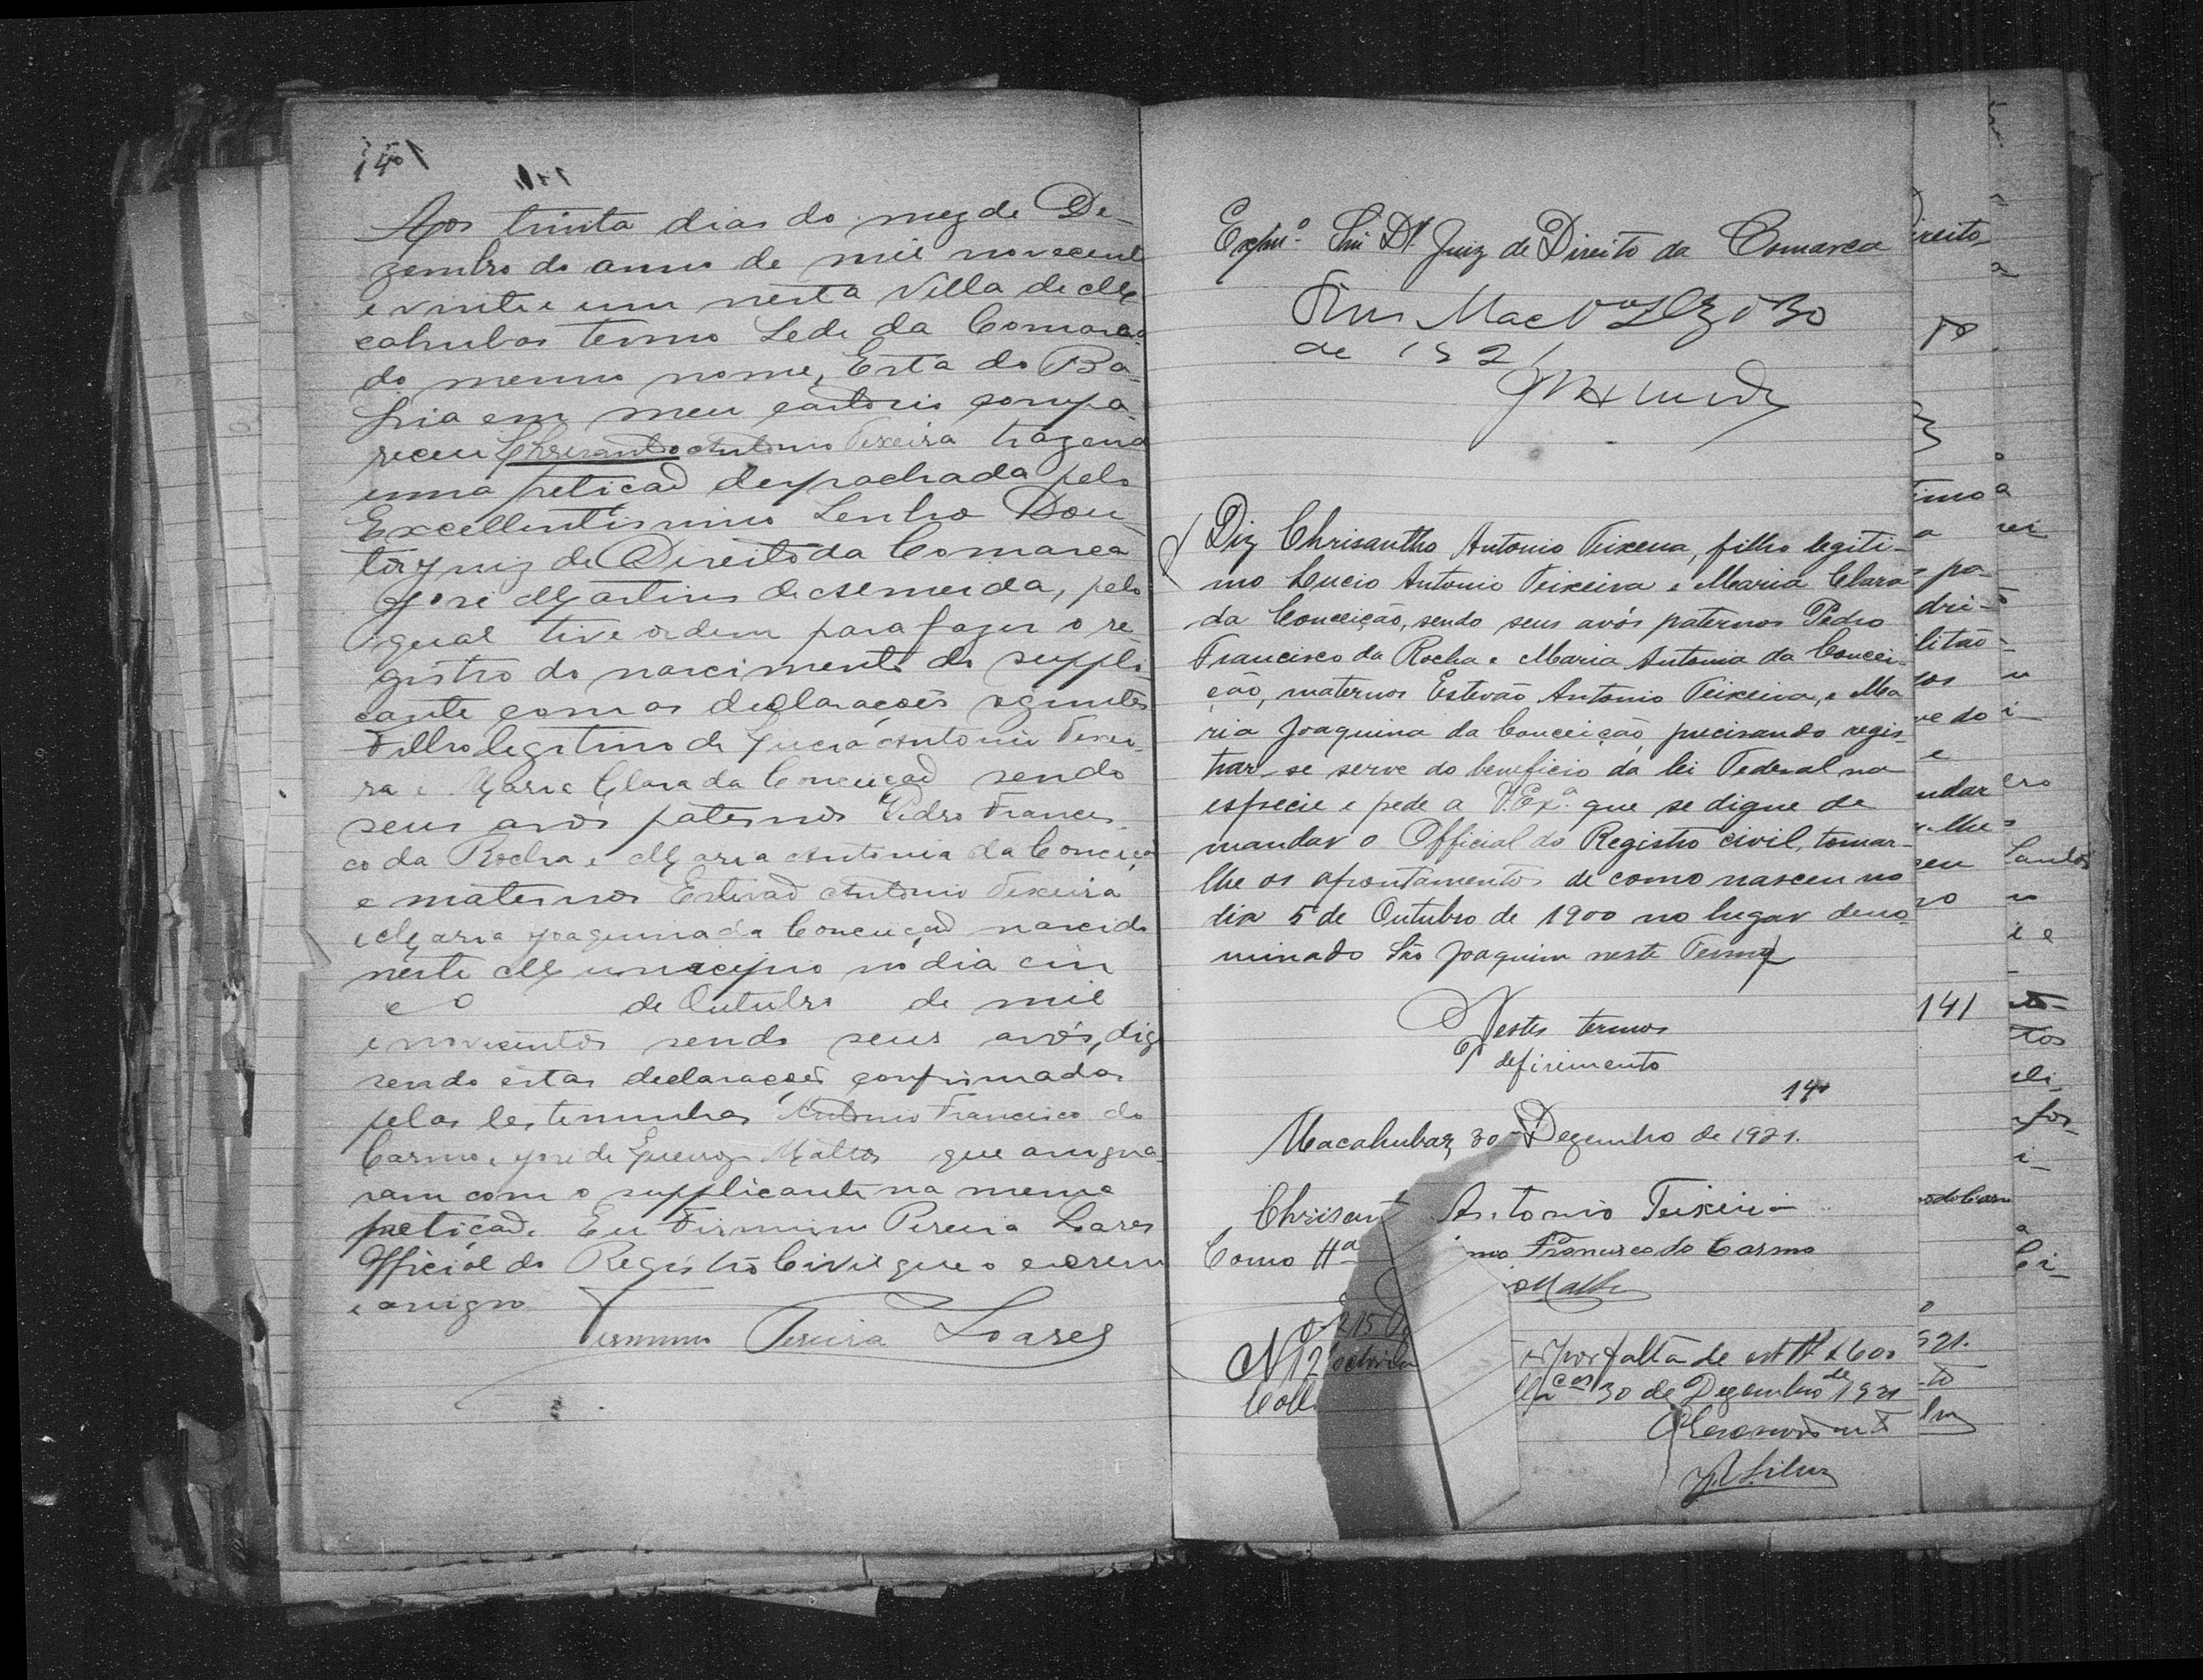 140
Aos trinta dias do mez de De-
zembro do anno de mil novecent
e vinte e um nesta Villa de Ma
cahubas termo Sede da Comarca
do mesmo nome, Esta do Ba-
hia em meu cartorio compa-
receu Chrisantho Antonio Teixeira trazend
uma petição despachada pelo
Excellentissimo Senhor Dou-
tor Juiz de Direito da Comarca
José Martins de Almeida, pelo
qual tive ordem para fazer o re-
gistro do nascimento do suppli-
cante com as declarações seguintes
Filho legitimo de Lucio Antonio Teixei-
ra e Maria Clara da Conceição sendo
seus avós paternos Pedro Francis-
co da Rocha e Maria Antonia da Conceiçã
e maternos Estevão Antonio Teixeira
e Maria Joaquina da Conceição nascido
neste Municipio no dia cin
co de Outubro de mil
e novecentos sendo seus avós, dig
sendo estas declarações confirmadas
pelas testemunhas Antonio Francisco do
Carmo e José de Queiroz Mattos que assigna-
ram com o supplicante na mesma
petição. Eu Firmino Pereira Soares
Official do Registro Civil que o escrevi
e assigno
Firmino Pereira Soares
Exmº. Snr. Dr. Juiz de Direito da Comarca
30
de 1921
Diz Chrisantho Antonio Teixeira, filho legiti-
mo Lucio Antonio Teixeira e Maria Clara
da Conceição, sendo seus avós paternos Pedro
Francisco da Rocha e Maria Antonia da Concei-
ção, maternos Estevão Antonio Teixeira, e Ma
ria Joaquina da Conceição precisando regis-
trar-se serve do beneficio da lei Federal na
especie e pede a V. Exª. que se digne de
mandar o Official do Registro civil, tomar-
lhe os apontamentos de como nasceu no
dia 5 de Outubro de 1900 no lugar deno-
minado São Joaquim neste Termo
Nestes termos
P deferimento
140
Macahubas, 30 Dezembro de 1921.
Chrisant Antonio Teixeira
Como Ttª nio Francisco do Carmo
Mattos
Nº 12
Coll
por falta de est
30 de Dezembro de 1921
Silva
141